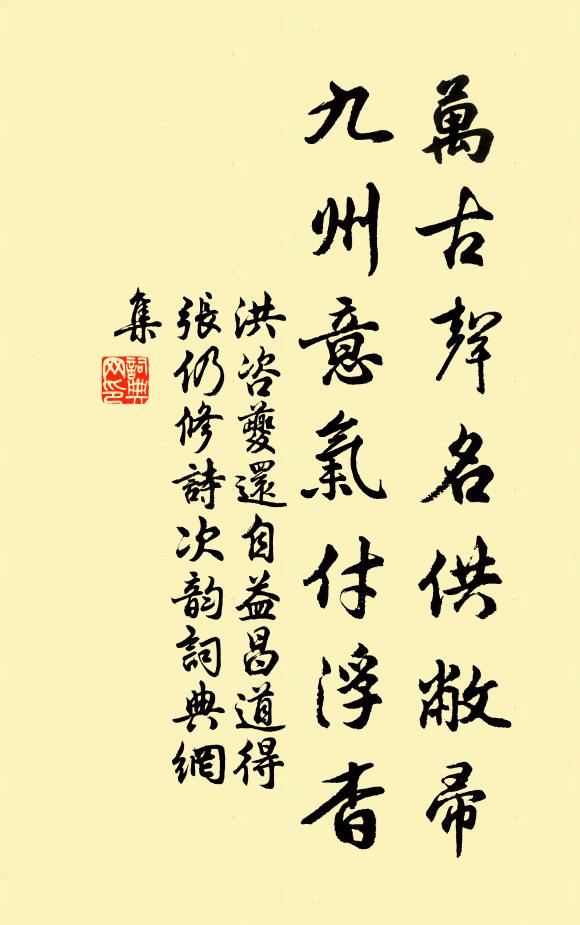 萬古聲名供敝帚
九州意氣付浮杳
洪咨夔還自益昌道得
張仍修詩次韵詞典網
集
詞典
网印